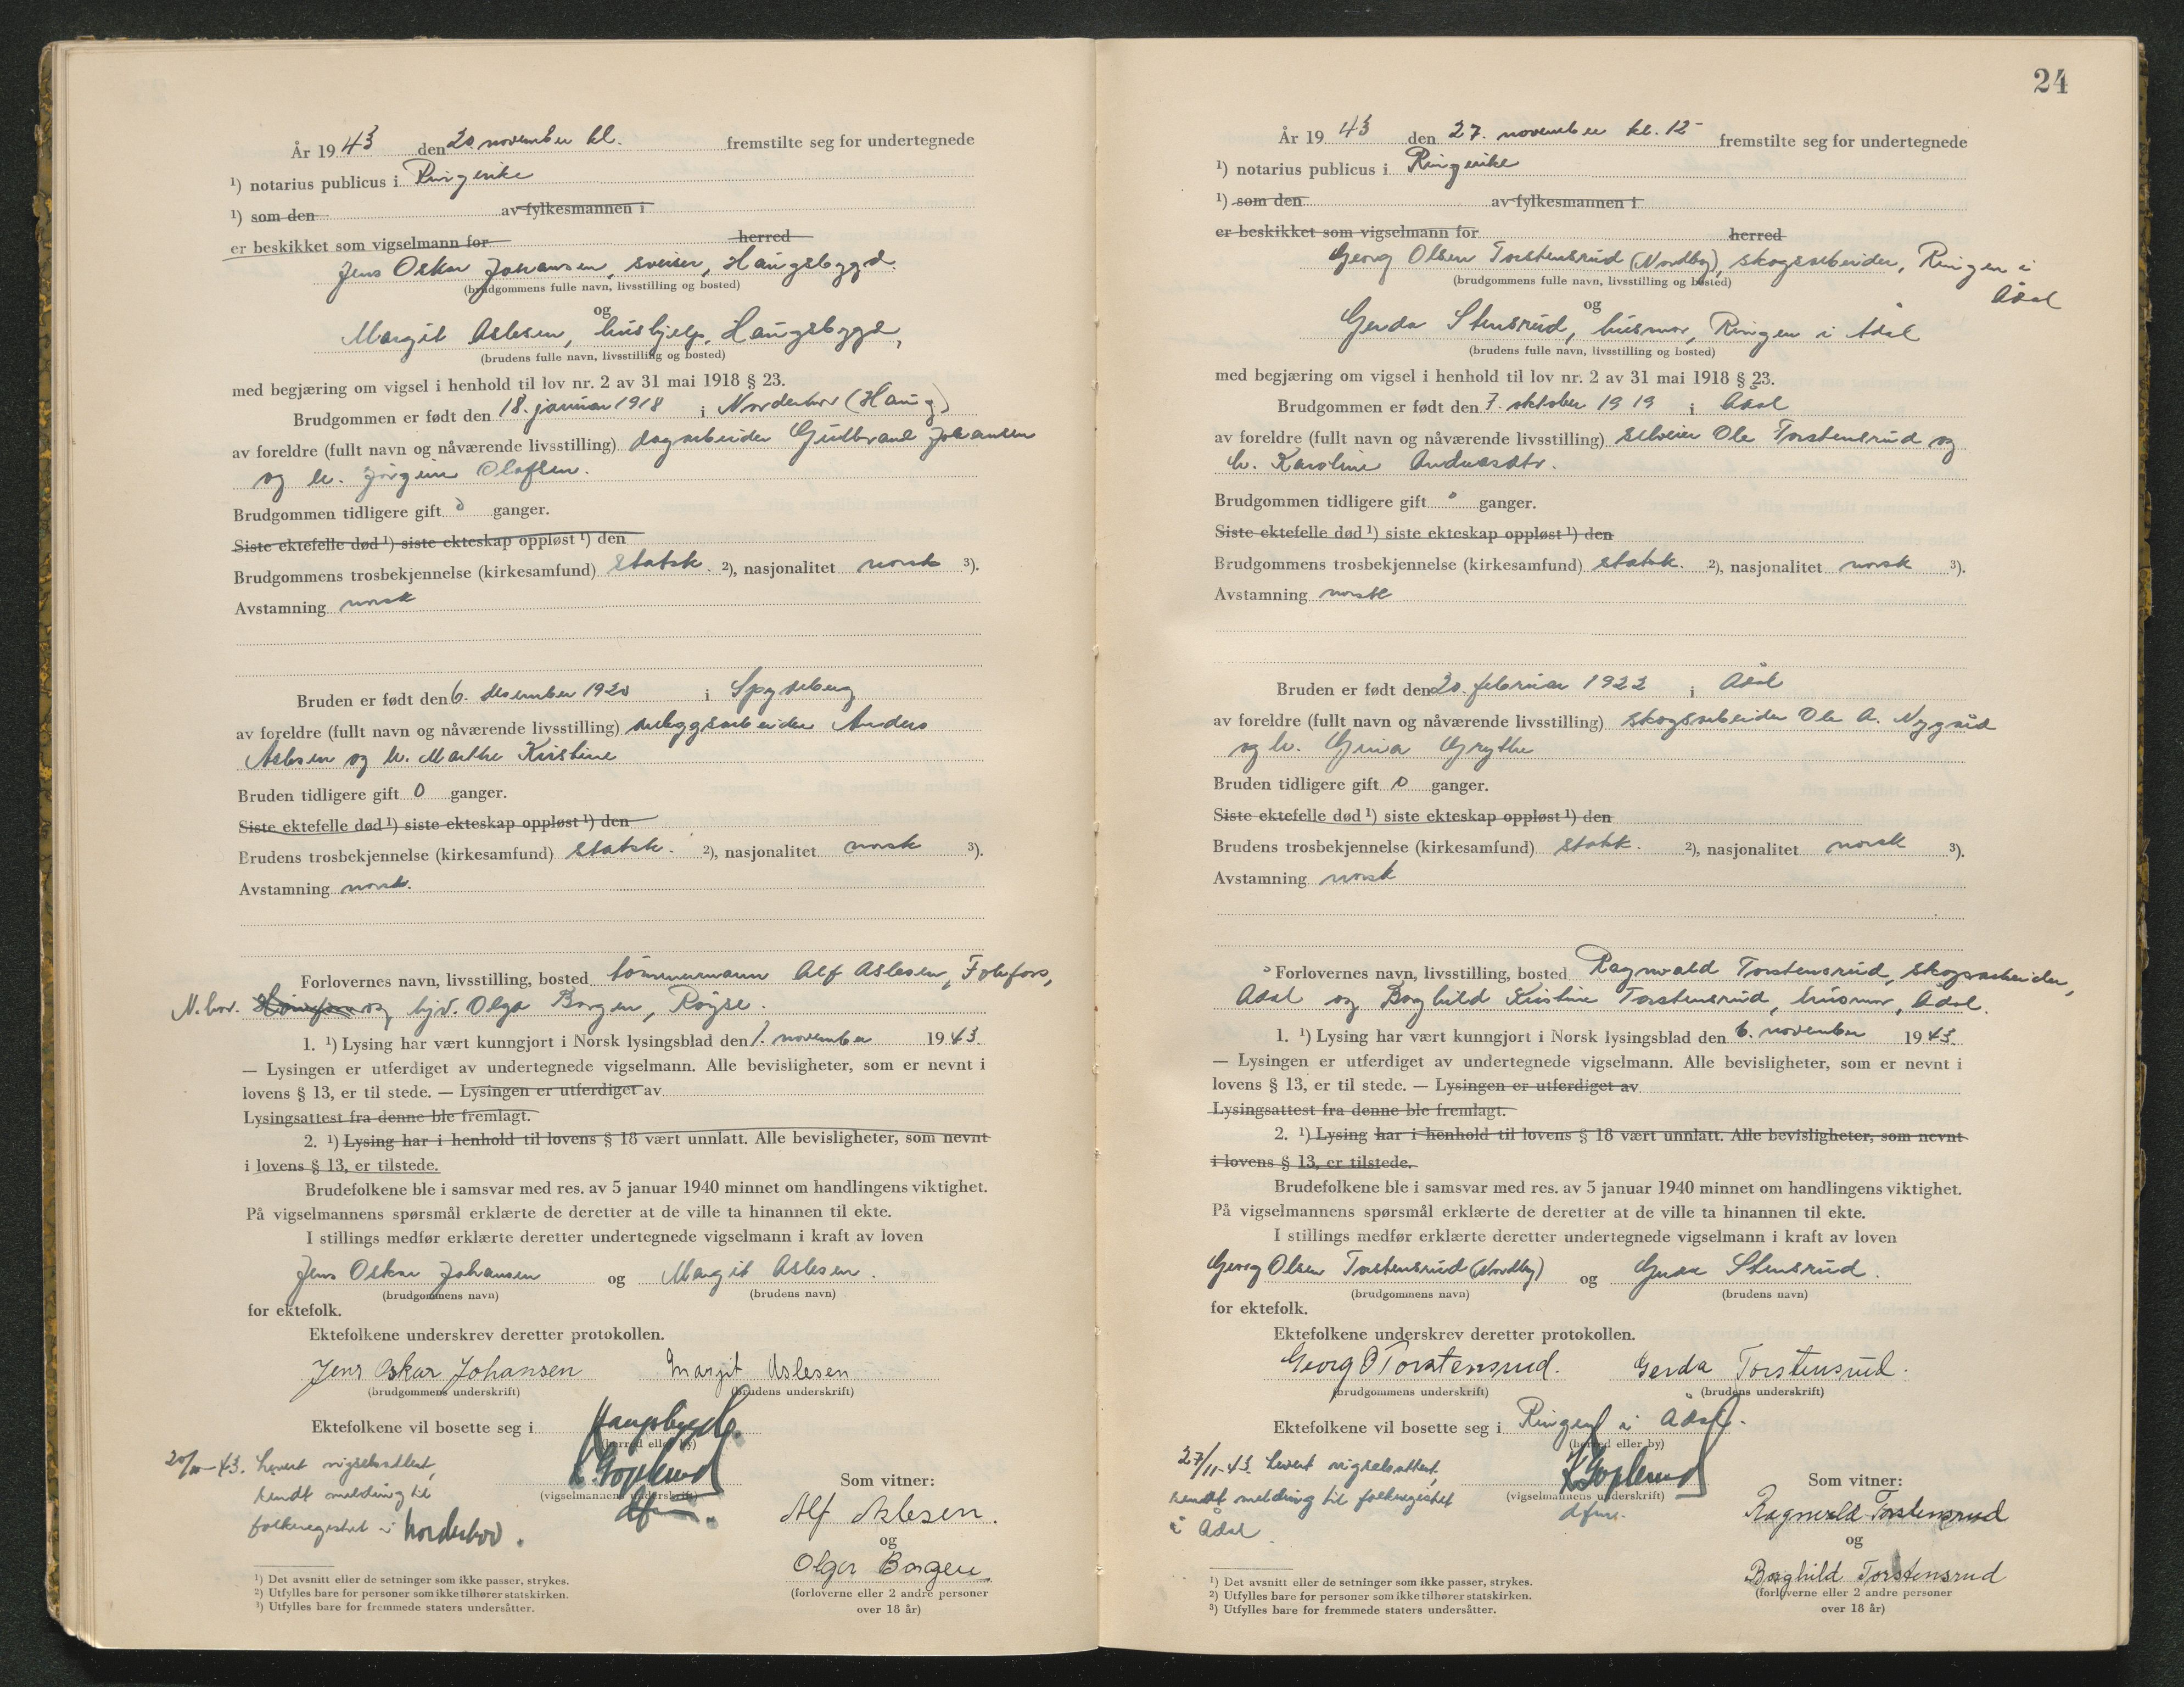 År 1943 den 20 november kl. fremstilte seg for undertegnede
¹) notarius publicus i Ringerike
¹) som den av fylkesmannen i
er beskikket som vigselmann for herred
Jens Oskar Johansen, sveiser, Haugsbygd.
(brudgommens fulle navn, livsstilling og bosted)
og
Margit Aslesen, hushjelp, Haugsbygd,
(brudens fulle navn, livsstilling og bosted)
med begjæring om vigsel i henhold til lov nr. 2 av 31 mai 1918 § 23.
Brudgommen er født den 18. januar 1918 i Norderhov (Haug)
av foreldre (fullt navn og nåværende livsstilling) dagarbeider Gudbrand Johansen
og h. Jørgine Olafsen.
Brudgommen tidligere gift 0 ganger.
Siste ektefelle død ¹) siste ekteskap oppløst ¹) den
Brudgommens trosbekjennelse (kirkesamfund) statsk. ²), nasjonalitet norsk ³).
Avstamning norsk
Bruden er født den 6. desember 1920 i Spydeberg
av foreldre (fullt navn og nåværende livsstilling) anleggsarbeider Anders
Aslesen og h. Marthe Kristine
Bruden tidligere gift 0 ganger.
Siste ektefelle død ¹) siste ekteskap oppløst ¹) den
Brudens trosbekjennelse (kirkesamfund) statsk. ²), nasjonalitet norsk ³).
Avstamning norsk.
Forlovernes navn, livsstilling, bosted tømmermann Alf Aslesen, Follufoss,
N.hov. Hønefoss og Olga Borgen, Røyse.
1. ¹) Lysing har vært kunngjort i Norsk lysingsblad den 1. november 1943.
— Lysingen er utferdiget av undertegnede vigselmann. Alle bevisligheter, som er nevnt i
lovens § 13, er til stede. — Lysingen er utferdiget av
Lysingsattest fra denne ble fremlagt.
2. ¹) Lysing har i henhold til lovens § 18 vært unnlatt. Alle bevisligheter, som nevnt
i lovens § 13, er tilstede.
Brudefolkene ble i samsvar med res. av 5 januar 1940 minnet om handlingens viktighet.
På vigselmannens spørsmål erklærte de deretter at de ville ta hinannen til ekte.
I stillings medfør erklærte deretter undertegnede vigselmann i kraft av loven
Jens Oskar Johansen og Margit Aslesen.
(brudgommens navn) (brudens navn)
for ektefolk.
Ektefolkene underskrev deretter protokollen.
Jens Oskar Johansen Margit Aslesen
(brudgommens underskrift) (brudens underskrift)
Ektefolkene vil bosette seg i Haugsbygd.
(herred eller by)
20/11-43. Levert vigselsattest,
sendt melding til
folkeregistret i Norderhov.
(vigselmannens underskrift)
Som vitner:
Alf Aslesen.
og
Olga Borgen.
(forloverne eller 2 andre personer
over 18 år)
¹) Det avsnitt eller de setninger som ikke passer, strykes.
²) Utfylles bare for personer som ikke tilhører statskirken.
³) Utfylles bare for fremmede staters undersåtter.
24
År 1943 den 27. november kl. 12- fremstilte seg for undertegnede
¹) notarius publicus i Ringerike
¹) som den av fylkesmannen i
er beskikket som vigselmann for herred
Georg Olsen Torstensrud (Nordby), skogsarbeider, Ringen i
Ådal
(brudgommens fulle navn, livsstilling og bosted)
og
Gerda Stensrud, husmor, Ringen i Ådal
(brudens fulle navn, livsstilling og bosted)
med begjæring om vigsel i henhold til lov nr. 2 av 31 mai 1918 § 23.
Brudgommen er født den 7. oktober 1919 i Ådal
av foreldre (fullt navn og nåværende livsstilling) selveier Ole Torstensrud og
h. Karoline Andreasdtr.
Brudgommen tidligere gift 0 ganger.
Siste ektefelle død ¹) siste ekteskap oppløst ¹) den
Brudgommens trosbekjennelse (kirkesamfund) statsk. ²), nasjonalitet norsk ³).
Avstamning norsk
Bruden er født den 20. februar 1922 i Ådal
av foreldre (fullt navn og nåværende livsstilling) skogsarbeider Ole A. Nygård
og h. Gina Grythe
Bruden tidligere gift 0 ganger.
Siste ektefelle død ¹) siste ekteskap oppløst ¹) den
Brudens trosbekjennelse (kirkesamfund) statsk. ²), nasjonalitet norsk ³).
Avstamning norsk
Forlovernes navn, livsstilling, bosted Ragnvald Torstensrud, skogsarbeider,
Ådal og Borghild Kristine Torstensrud, husmor, Ådal.
1. ¹) Lysing har vært kunngjort i Norsk lysingsblad den 6. november 1943.
— Lysingen er utferdiget av undertegnede vigselmann. Alle bevisligheter, som er nevnt i
lovens § 13, er til stede. — Lysingen er utferdiget av
Lysingsattest fra denne ble fremlagt.
2. ¹) Lysing har i henhold til lovens § 18 vært unnlatt. Alle bevisligheter, som nevnt
i lovens § 13, er tilstede.
Brudefolkene ble i samsvar med res. av 5 januar 1940 minnet om handlingens viktighet.
På vigselmannens spørsmål erklærte de deretter at de ville ta hinannen til ekte.
I stillings medfør erklærte deretter undertegnede vigselmann i kraft av loven
Georg Olsen Torstensrud (Nordby) og Gerda Stensrud.
(brudgommens navn) (brudens navn)
for ektefolk.
Ektefolkene underskrev deretter protokollen.
Georg O Torstensrud. Gerda Torstensrud.
(brudgommens underskrift) (brudens underskrift)
Ektefolkene vil bosette seg i Ringen i Ådal.
(herred eller by)
27/11-43. Levert vigselsattest,
sendt melding til folkeregistret
i Ådal
(vigselmannens underskrift)
Som vitner:
Ragnvald Torstensrud
og
Borghild Torstensrud
(forloverne eller 2 andre personer
over 18 år)
¹) Det avsnitt eller de setninger som ikke passer, strykes.
²) Utfylles bare for personer som ikke tilhører statskirken.
³) Utfylles bare for fremmede staters undersåtter.